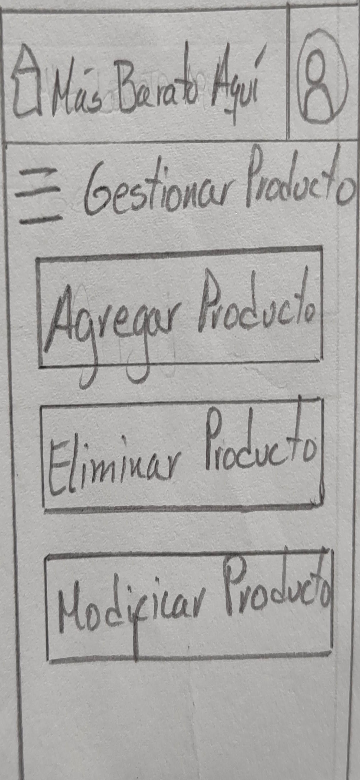 Más Barato Aquí
Gestionar Producto
Agregar Producto
Eliminar Producto
Modificar Producto